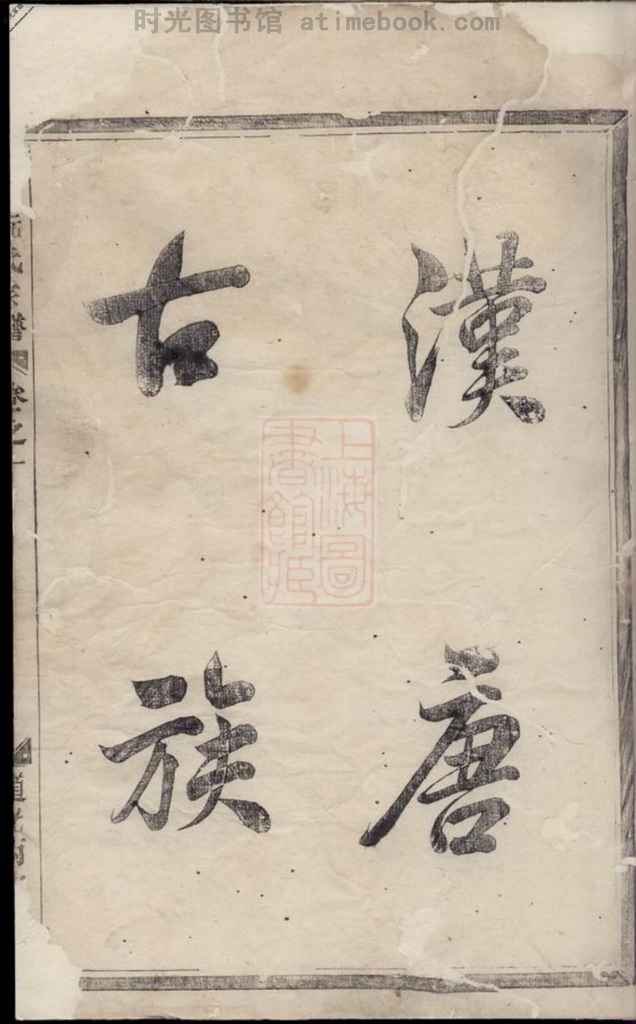 时光图书馆 atimebook.com
漢唐
古族
上海圖
書館藏
宗譜 卷之一
道